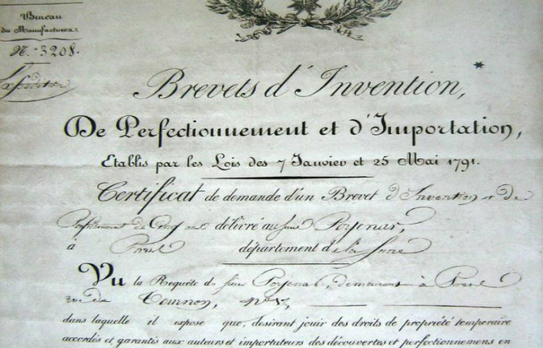 Bureau
des Manufactures
N.º 3208.
Expédition
Brevets d'Invention,
De Perfectionnement et d'Importation,
Etablis par les Lois des 7 Janvier et 25 Mai 1791.
Certificat de demande d'un Brevet d'Invention et de
Perfectionnement de délivré au
à département de la Seine
Vu la Requête du Sieur demeurant à
rue de Tournon,
dans laquelle il expose que, desirant jouir des droits de propriété temporaire
accordés et garantis aux auteurs et importateurs des découvertes et perfectionnemens en